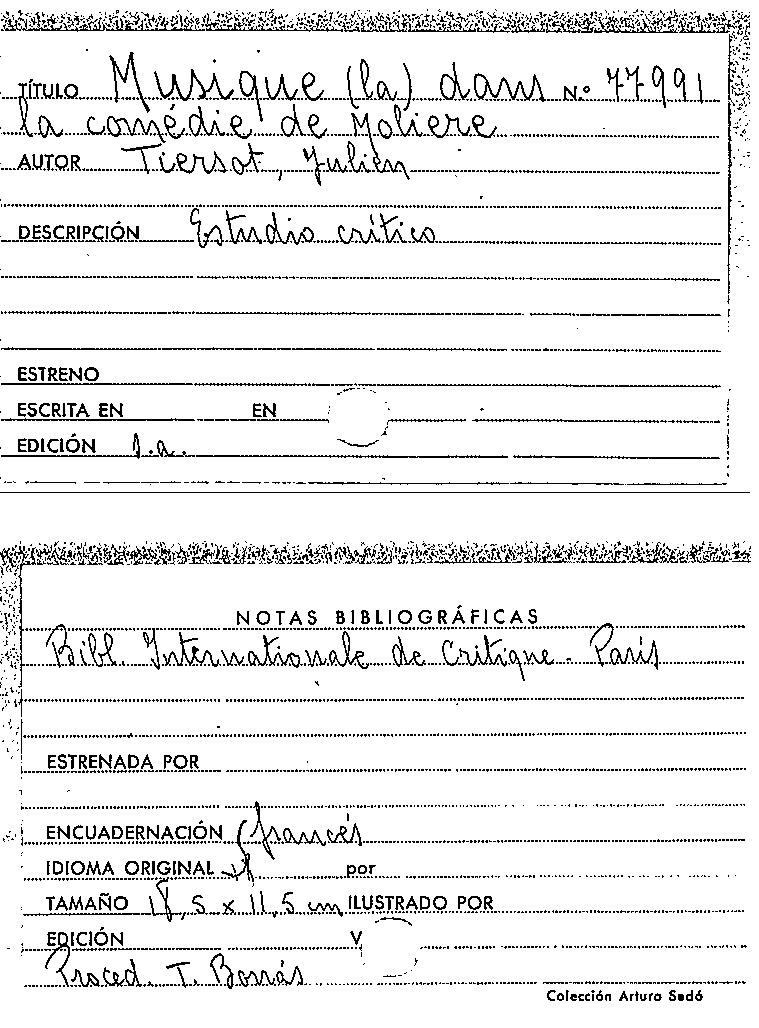 TÍTULO Musique (la) dans N.° 77991
la comédie de Moliere
AUTOR Tiersot, Julien
DESCRIPCIÓN Estudio crítico
ESTRENO
ESCRITA EN EN
EDICIÓN s.a.
NOTAS BIBLIOGRÁFICAS
Bibl. Internationale de Critique - París
ESTRENADA POR
ENCUADERNACIÓN francés
IDIOMA ORIGINAL por
TAMAÑO 18,5 x 11,5 cm ILUSTRADO POR
EDICIÓN V
Proced. T. Borrás
Colección Arturo Sedó